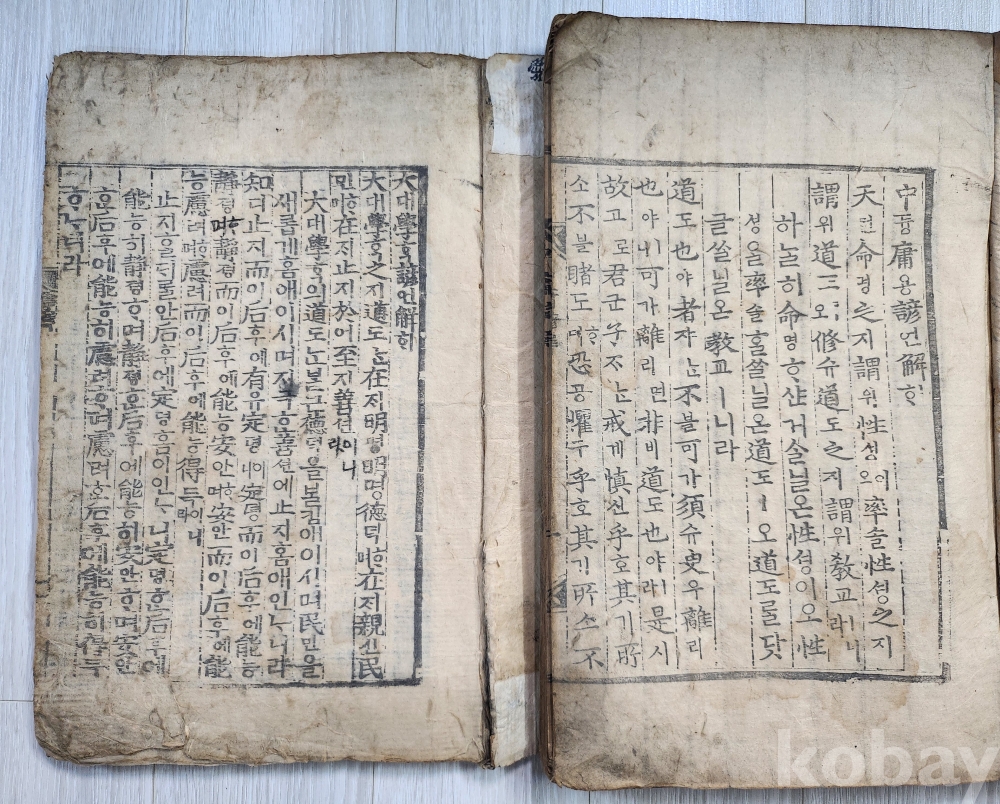 中듕庸용諺언解ᄒᆡ
天텬命명之지謂위性셩이오率솔性셩之지
謂위道도ㅣ오修슈道도之지謂위敎교ㅣ니라
하ᄂᆞᆯ히命명ᄒᆞ샨거ᄉᆞᆯ닐온性셩이오性
셩을率솔홀쓸닐온道도ㅣ오道도를닷
글쓸닐온敎교ㅣ니라
道도也야者쟈ᄂᆞᆫ不블可가須슈臾유離리
也야ㅣ니可가離리면非비道도也야ㅣ라是시
故고로君군子ᄌᆞᄂᆞᆫ戒계愼신乎호其기所
소不블睹도ᄒᆞ며恐공懼구乎호其기所소不
大대學ᄒᆞᆨ諺언解ᄒᆡ
大대學ᄒᆞᆨ之지道도ᄂᆞᆫ在ᄌᆡ明명明명德덕ᄒᆞ며在ᄌᆡ親신民
민ᄒᆞ며在ᄌᆡ止지於어至지善션이니라
大대學ᄒᆞᆨ의道도ᄂᆞᆫᄇᆞᆯᄀᆞᆫ德덕을ᄇᆞᆰ킴애이시며民민을
새롭게홈애이시며지극ᄒᆞᆫ善션에止지홈애인ᄂᆞ니라
知디止지而이后후에有유定뎡이니定뎡而이后후에能능
靜졍ᄒᆞ며靜졍而이后후에能능安안ᄒᆞ며安안而이后후에能
능慮려ᄒᆞ며慮려而이后후에能능得득이니라
止지을디롤안后후에定뎡홈이인ᄂᆞ니定뎡ᄒᆞᆫ后후에
能능히靜졍ᄒᆞ며靜졍ᄒᆞᆫ后후에能능히安안ᄒᆞ며安안
ᄒᆞᆫ后후에能능히慮려ᄒᆞ며慮려ᄒᆞᆫ后후에能능히得득
ᄒᆞᄂᆞ니라
kobay